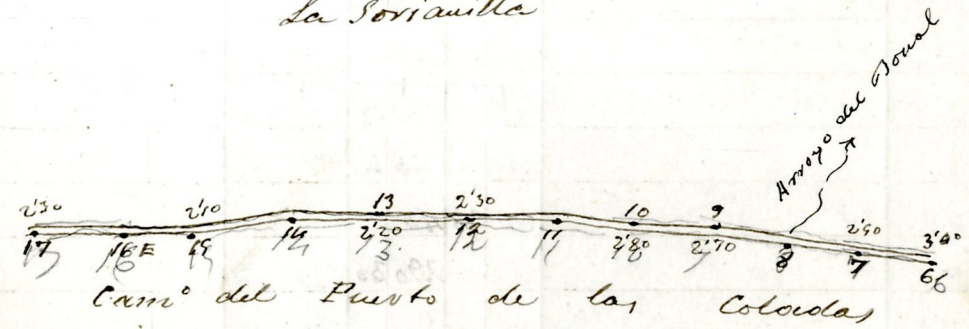 La Sorianilla
Arroyo del Bonal
2'30 2'10 13 2'30 10 9 2'50 3'40
17 16 E 15 14 2'20 12 11 2'80 2'70 8 7 6
Cam° del Puerto de las Coloadas